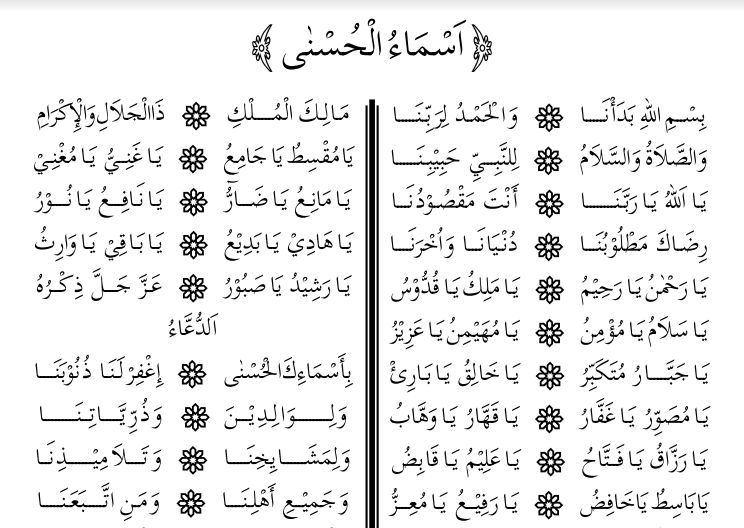 اَسْمَاءُ الْحُسْنٰى
بِسْمِ اللهِ بَدَأْنَـا وَالْحَمْـدُ لِرَبِّنَـا
وَالصَّلَاةُ وَالسَّلَامُ لِلنَّبِـيِّ حَبِيْبِنَـا
يَا اَللهُ يَا رَبَّنَـا أَنْتَ مَقْصُوْدُنَـا
رِضَاكَ مَطْلُوْبُنَـا دُنْيَانَـا وَاُخْرٰنَـا
يَا رَحْمٰنُ يَا رَحِيْمُ يَا مَلِكُ يَا قُدُّوْسُ
يَا سَلَامُ يَا مُؤْمِنُ يَا مُهَيْمِنُ يَا عَزِيْزُ
يَا جَبَّـارُ مُتَكَبِّرُ يَا خَالِقُ يَا بَارِئُ
يَا مُصَوِّرُ يَا غَفَّارُ يَا قَهَّارُ يَا وَهَّابُ
يَا رَزَّاقُ يَا فَـتَّاحُ يَا عَلِيْمُ يَا قَابِضُ
يَا بَاسِطُ يَا خَافِضُ يَا رَفِيْـعُ يَا مُعِـزُّ
مَـالِكَ الْمُـلْكِ ذَا الْجَلَالِ وَالْإِكْرَامِ
يَا مُقْسِطُ يَا جَامِعُ يَا غَنِـيُّ يَا مُغْنِـيْ
يَا مَانِـعُ يَا ضَـارُّ يَا نَافِـعُ يَا نُـوْرُ
يَا هَادِيْ يَا بَدِيْعُ يَا بَاقِيْ يَا وَارِثُ
يَا رَشِيْدُ يَا صَبُوْرُ عَزَّ جَـلَّ ذِكْـرُهُ
اَلدُّعَاءُ
بِأَسْمَاءِكَ الْحُسْنٰى إِغْفِرْ لَنَا ذُنُوْبَنَـا
وَلِـوَالِدِيْـنَ وَذُرِّيَّـاتِنَـا
وَلِمَشَـايِخِنَـا وَتَـلَامِيْـذِنَـا
وَجَمِيْـعِ أَهْلِنَـا وَمَنِ اتَّـبَعَنَـا